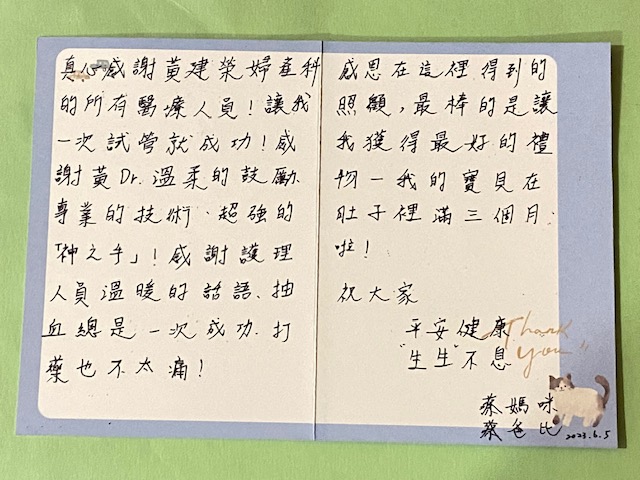 真心感謝黃建榮婦產科
的所有醫療人員！讓我
一次試管就成功！感
謝黃Dr.溫柔的鼓勵、
專業的技術、超強的
「神之手」！感謝護理
人員溫暖的話語、抽
血總是一次成功、打
藥也不太痛！
感恩在這裡得到的
照顧，最棒的是讓
我獲得最好的禮
物－我的寶貝在
肚子裡滿三個月
啦！
祝大家
平安健康
"生生"不息
Thank
you!!
蔡媽咪
蔡爸比 2023.6.5